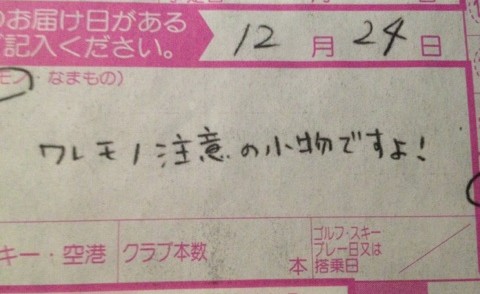 のお届け日がある
記入ください。
12月24日
モノ・なまもの)
ワレモノ注意の小物ですよ!
キー・空港
クラブ本数
本
ゴルフ・スキー
プレー日又は
搭乗日